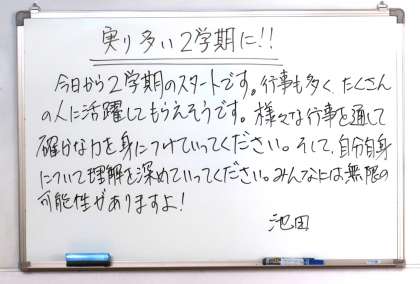 実り多い2学期に!!
今日から2学期のスタートです。行事も多く、たくさん
の人に活躍してもらえそうです。様々な行事を通して
確かな力を身につけていってください。そして、自分自身
について理解を深めていってください。みんなには無限の
可能性がありますよ!
池田